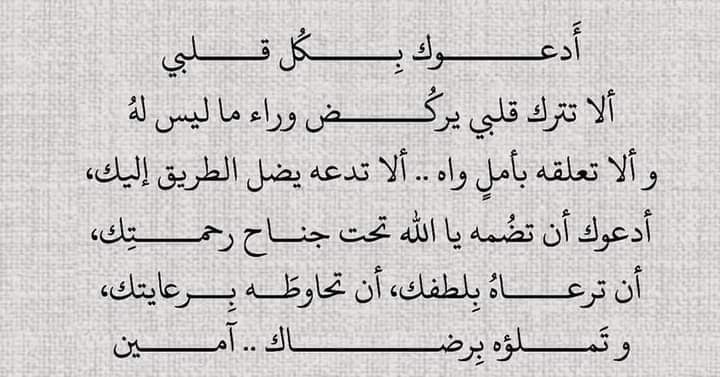 أَدعـــــوك بِـــــكُل قـــــلبي
ألا تترك قلبي يركُـــــض وراء ما ليس لهُ
و ألا تعلقه بأملٍ واه .. ألا تدعه يضل الطريق إليك،
أدعوك أن تضُمه يا الله تحت جنـاح رحمـــتِك،
أن ترعـــاهُ بِلطفك، أن تحاوطَـه بِـرعايتك،
و تَمـــلؤه بِرضـــــاك .. آمـــين